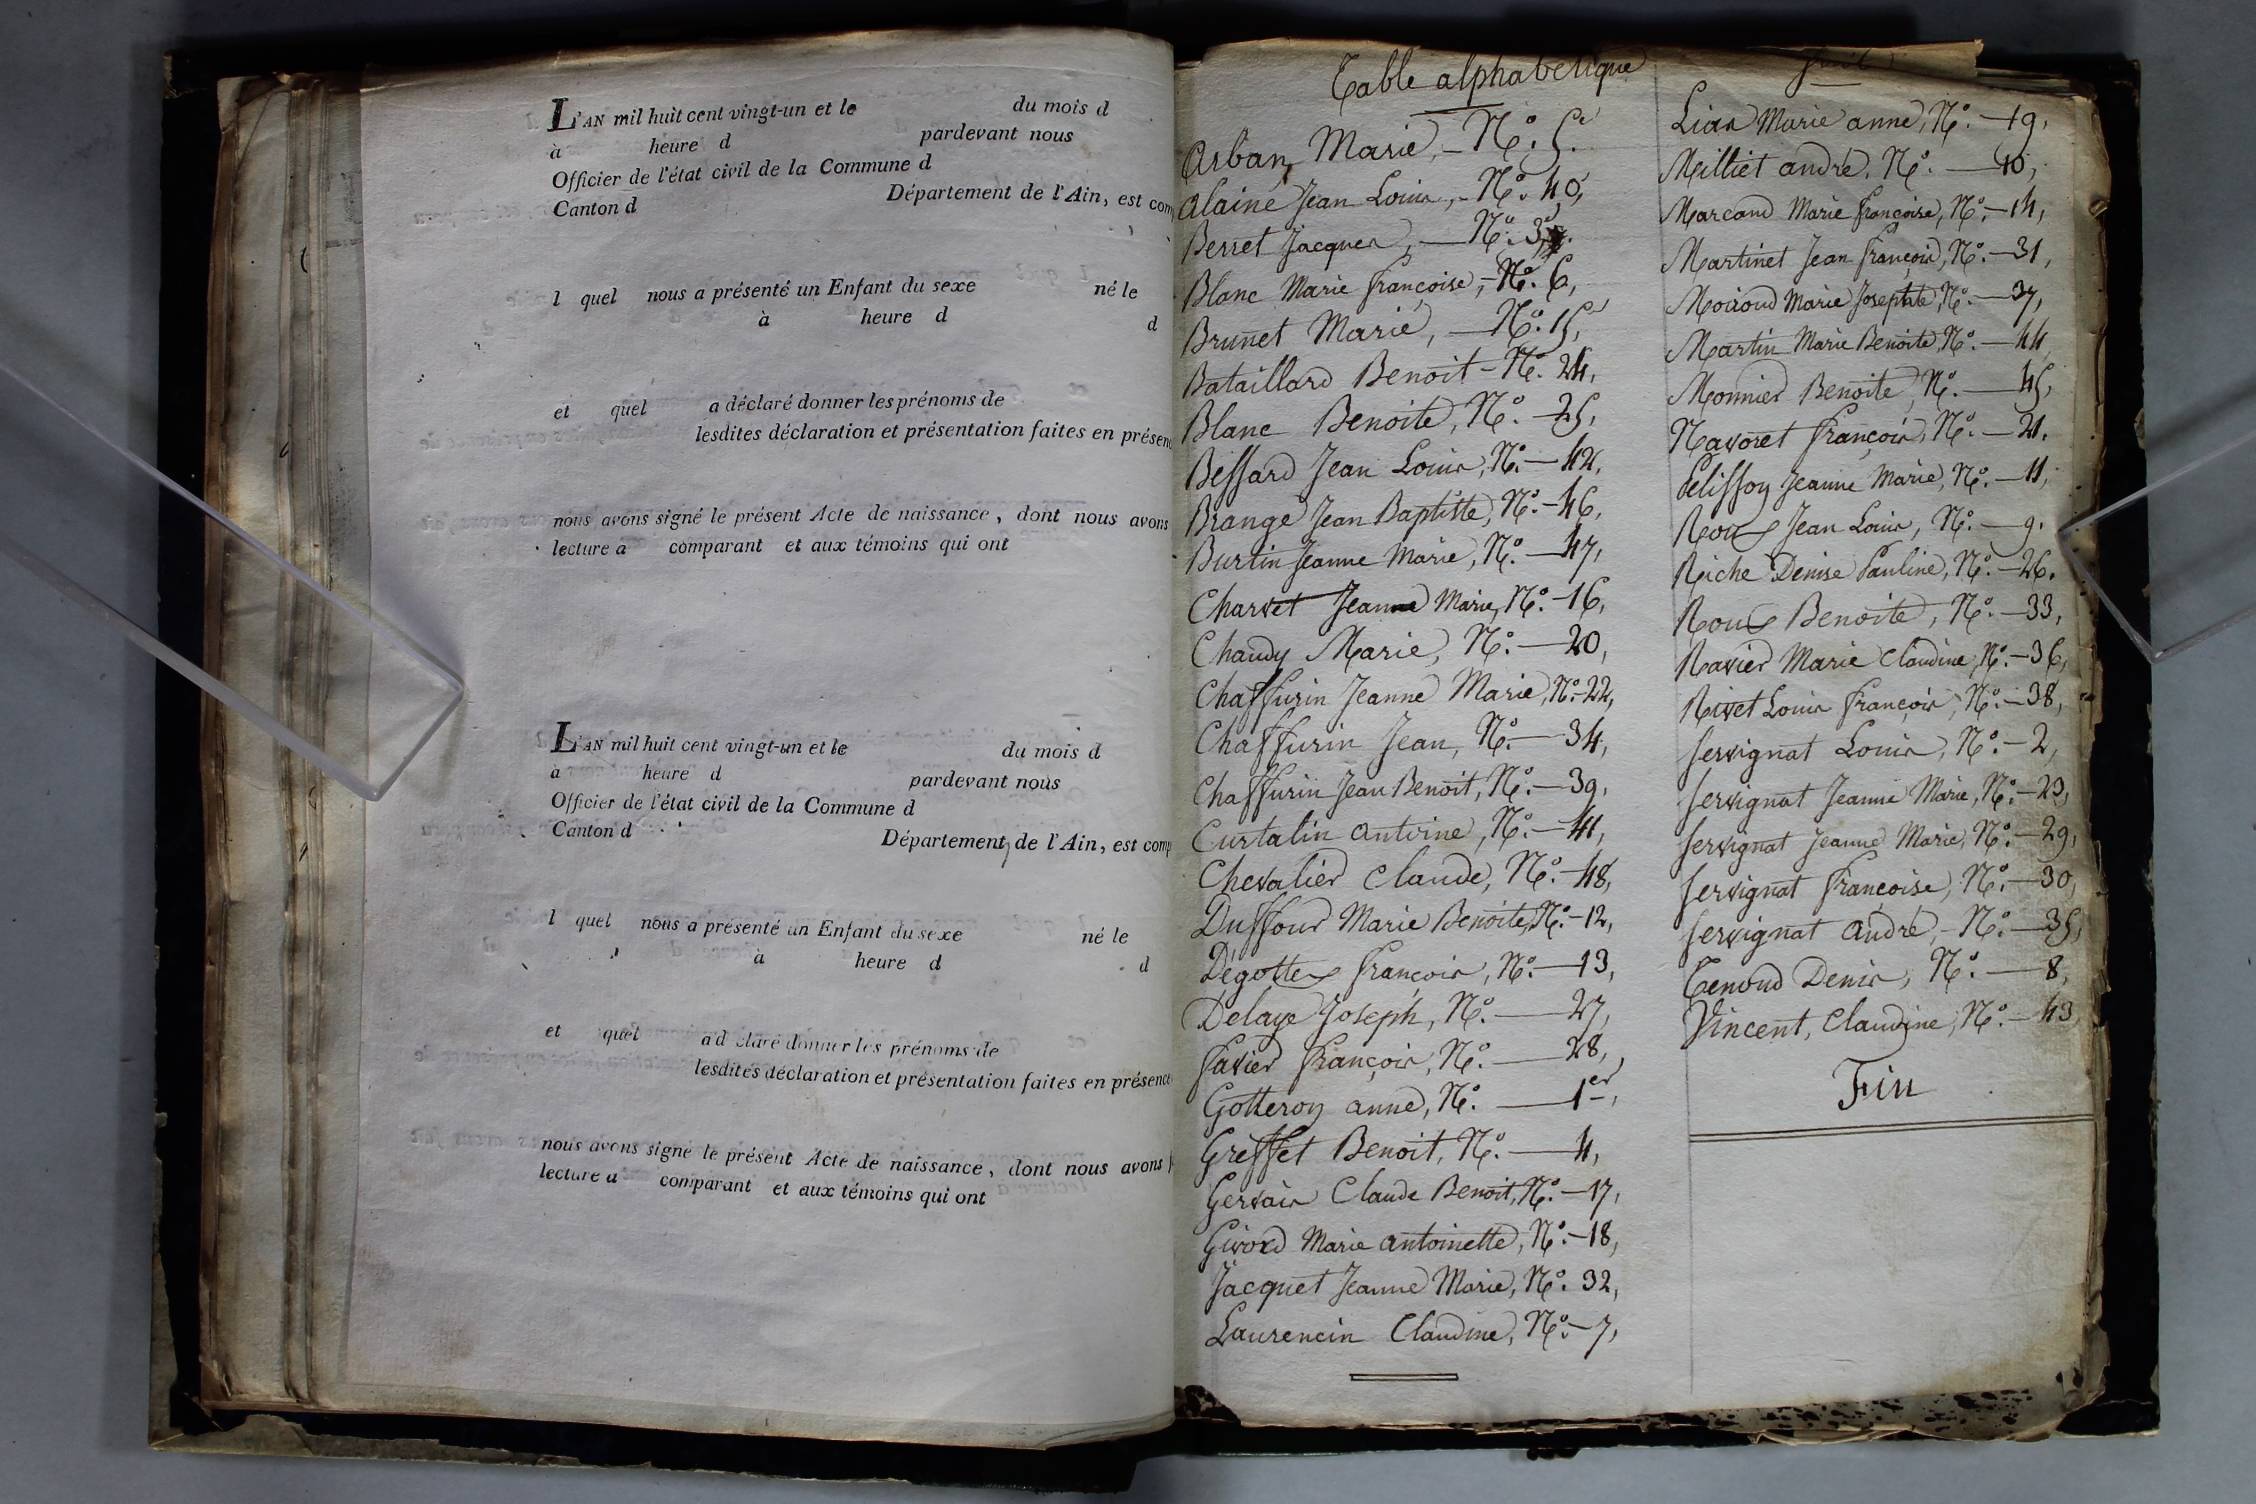 L'AN mil huit cent vingt-un et le du mois d
à heure d pardevant nous
Officier de l'état civil de la Commune d
Canton d Département de l'Ain, est com
l quel nous a présenté un Enfant du sexe né le
à heure d d
et quel a déclaré donner les prénoms de
lesdites déclaration et présentation faites en présen
nous avons signé le présent Acte de naissance, dont nous avons
lecture a comparant et aux témoins qui ont
L'AN mil huit cent vingt-un et le du mois d
à heure d pardevant nous
Officier de l'état civil de la Commune d
Canton d Département de l'Ain, est comp
l quel nous a présenté un Enfant du sexe né le
à heure d d
et quel a déclaré donner les prénoms de
lesdites déclaration et présentation faites en présence
nous avons signé le présent Acte de naissance, dont nous avons
lecture a comparant et aux témoins qui ont
Table alphabétique
Arban Marie, - N.° 5.
Alaine Jean Louis, - N.° 40,
Berret Jacques, — N.° 3.
Blanc Marie françoise, - N.° 6,
Brunet Marie, — N.° 15,
Bataillard Benoit - N.° 24,
Blanc Benoite, N.° — 25,
Bessard Jean Louis, N.° — 42,
Brange Jean Baptiste, N.° - 46,
Burtin Jeanne Marie, N.° — 47,
Charvet Jeanne Marie, N.° - 16,
Chaudy Marie, N.° — 20,
Chaffurin Jeanne Marie, N.° - 22,
Chaffurin Jean, N.° — 34,
Chaffurin Jean Benoit, N.° — 39,
Curtalin antoine, N.° — 41,
Chevalier Claude, N.° — 48,
Duffour Marie Benoite, N.° - 12,
Dégottex françois, N.° — 13,
Delaye Joseph, N.° — 27,
favier françois, N.° — 28,
Gotteron anne, N.° — 1er,
Greffet Benoit, N.° — 4,
Gervais Claude Benoit, N.° — 17,
Girord Marie antoinette, N.° - 18,
Jacquet Jeanne Marie, N.° 32,
Laurencin Claudine, N.° - 7,
Suite
Lias Marie anne, N.° — 19,
Milliet andré, N.° — 10,
Marcand Marie françoise, N.° — 14,
Martinet Jean françois, N.° — 31,
Moiroud Marie Josephte, N.° — 37,
Martin Marie Benoite, N.° — 44
Monnier Benoite, N.° — 45,
Navoret françois, N.° — 21.
Pelisson Jeanne Marie, N.° — 11,
Roux Jean Louis, N.° — 9.
Riche Denise Pauline, N.° — 26.
Roux Benoite, N.° — 33,
Ravier Marie Claudine, N.° — 36,
Rivet Louis françois, N.° — 38,
servignat Louis, N.° — 2,
servignat Jeanne Marie, N.° — 23,
servignat Jeanne Marie, N.° — 29,
servignat françoise, N.° — 30,
servignat andré, - N.° — 35,
Tenoud Denis, N.° — 8,
Vincent, Claudine, N.° — 43
Fin